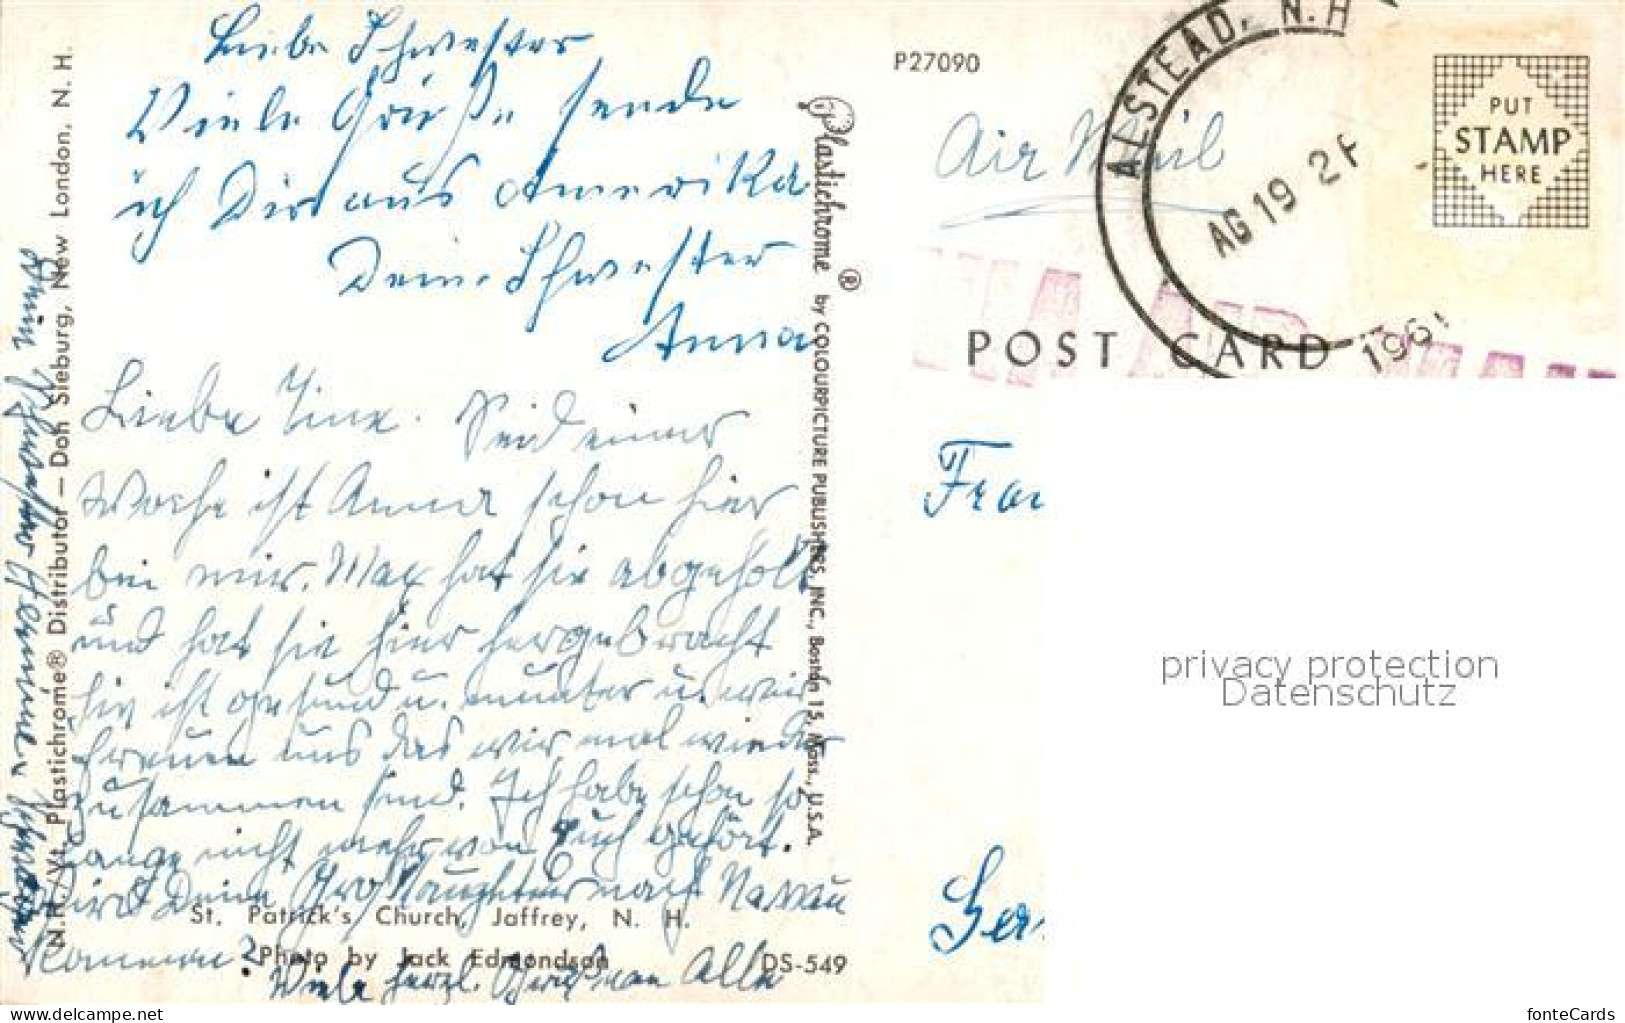 Liebe Schwester
Viele Grüße sende
ich Dir aus Amerika
Deine Schwester
Anna
Liebe Tine. Seid einer
Woche ist Anna schon hier
bei mir. Max hat sie abgeholt
und hat sie hier hergebracht
sie ist gesund u. munter u. wir
freuen uns das wir mal wieder
zusammen sind. Ich habe schon so
lange nicht mehr von Euch gehört.
Wird Deine nach
kommen?
Viele herzl. Grüße von Alle
Deine Schwester
N.H./Vt. Plastichrome® Distributor — Don Sieburg, New London, N. H.
St. Patrick's Church, Jaffrey, N. H.
Photo by Jack Edmondson
DS-549
Plastichrome ® by COLOURPICTURE PUBLISHERS, INC., Boston 15, Mass., U.S.A.
P27090
Air Mail
ALSTEAD, N.H
AG 19 2 P
196
PUT
STAMP
HERE
POST CARD
Frau
Ger
privacy protection
Datenschutz
www.delcampe.net
fonteCards